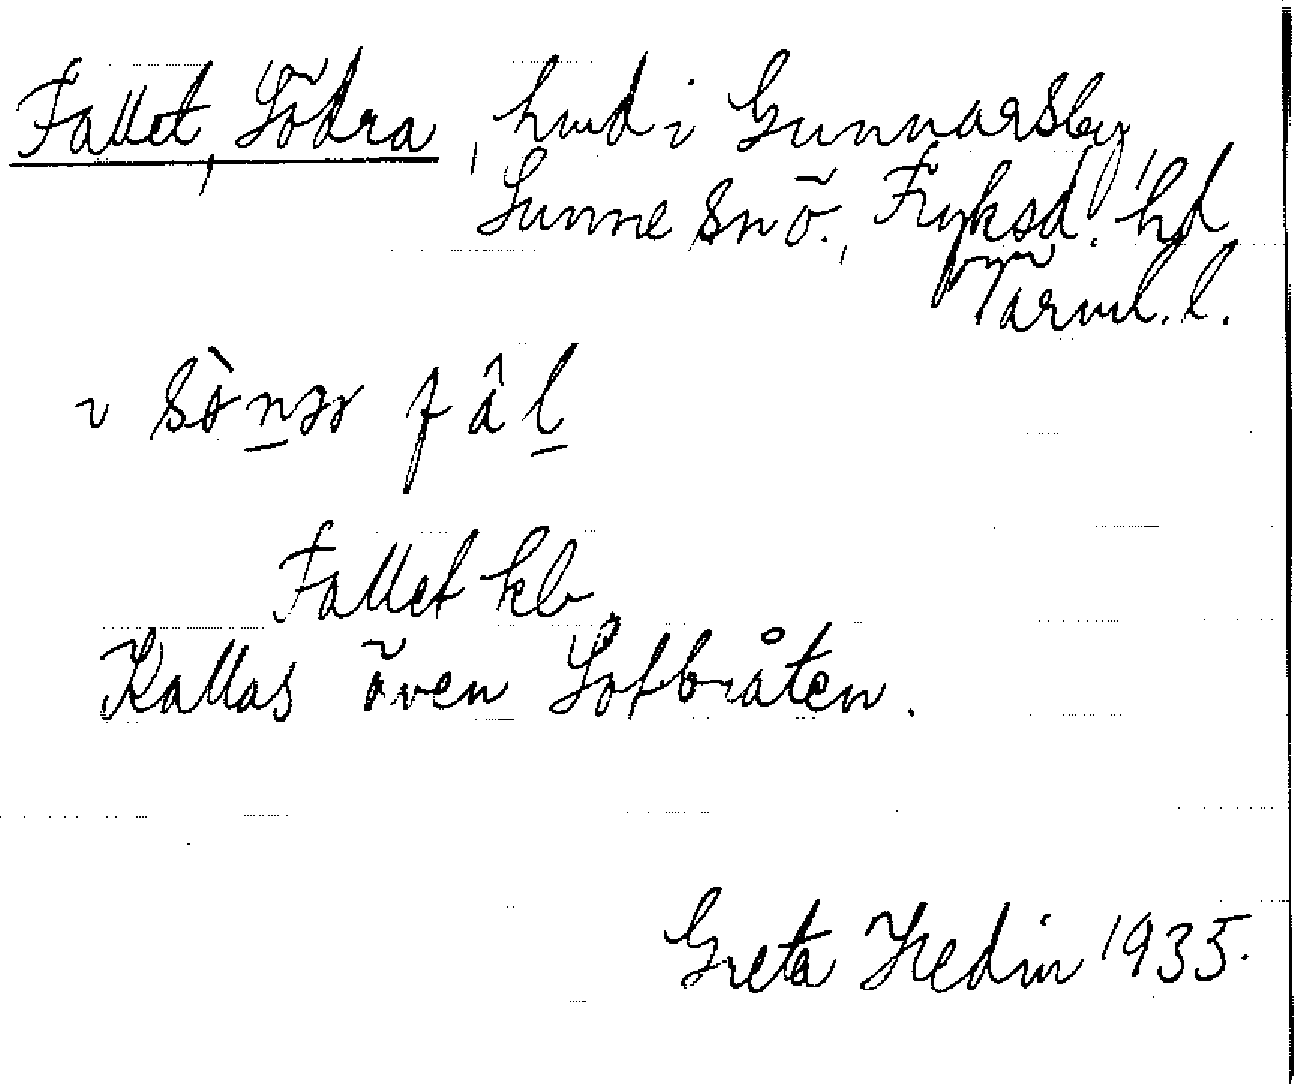 Fallet, Södra, hmd i Gunnarsby,
Sunne sn ö., Fryksd. hd
Värml. l.
fâl
Fallet kb
Kallas även Sotbråten.
Greta Hedin 1935.